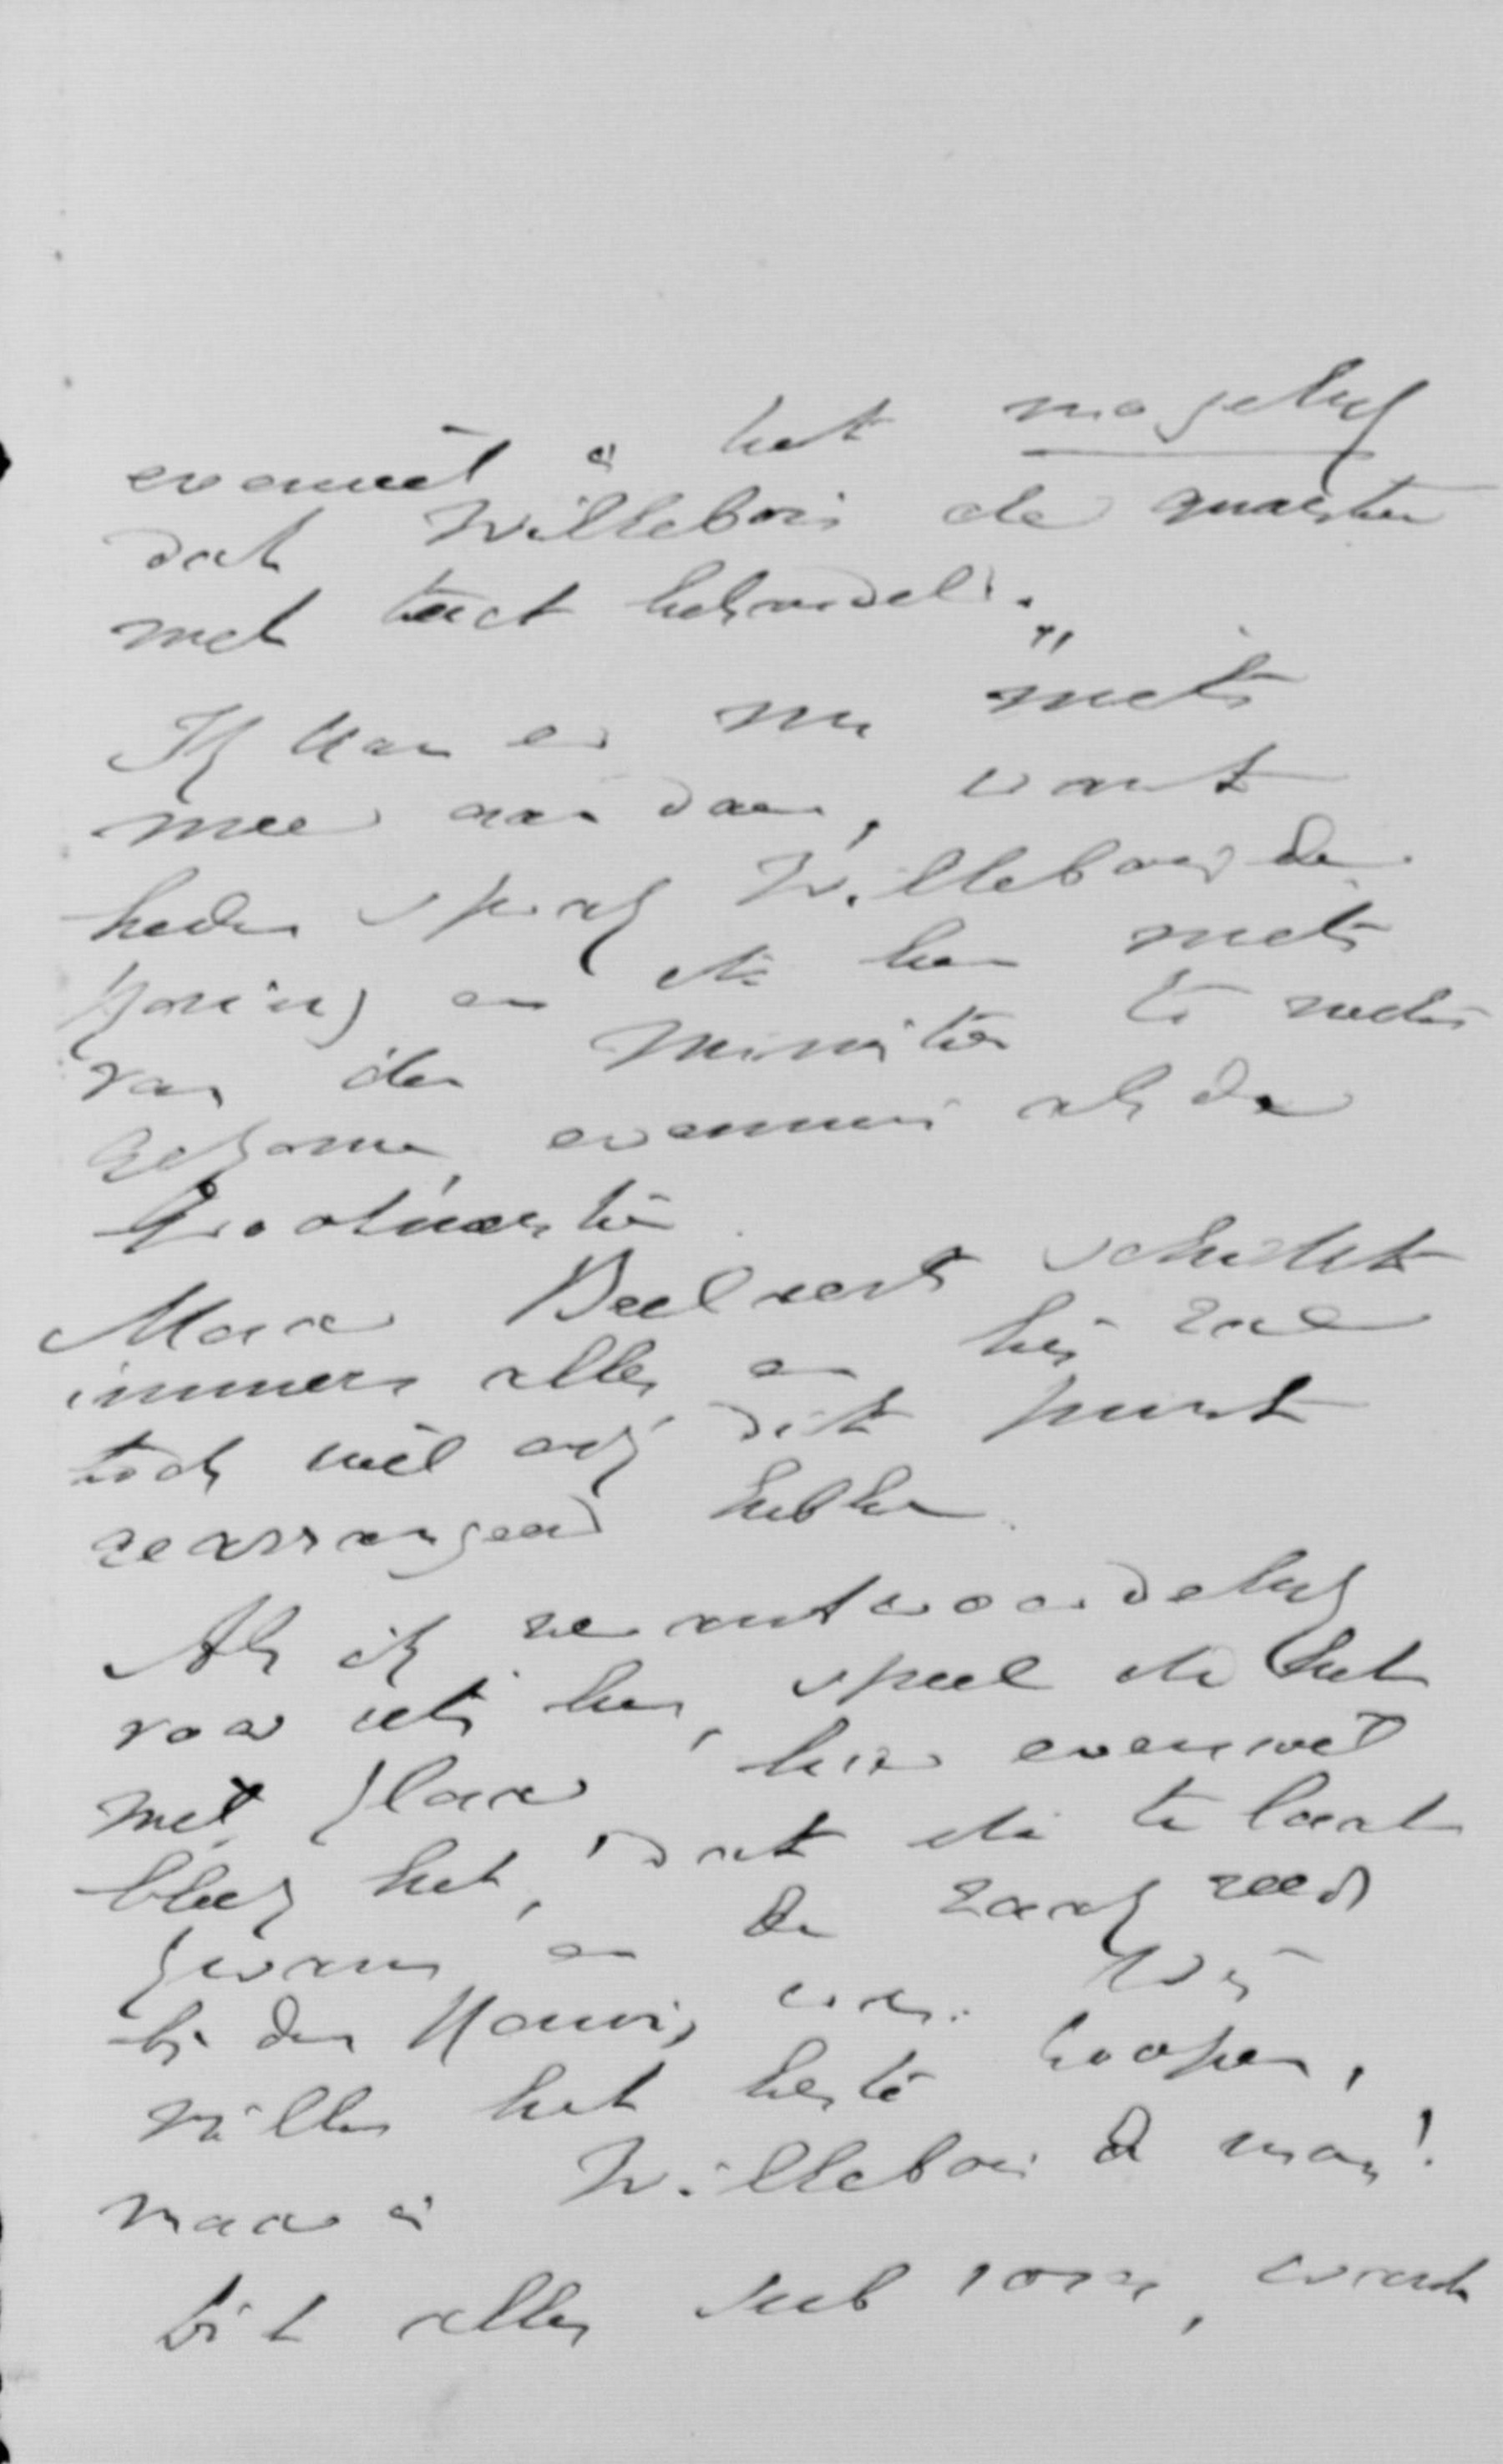 evenwel is het mogelijk
dat Willebois de quaestie
met tact behandelt.
Ik kan er nu niets
meer aan doen, want
heden sprak Willebois de
Koning en ik ben niets
van den Minister te weten
gekomen, evenmin als de
Grootmeester
Maar Beelaerts schikt
immers alles, en hij zal
toch wel ook dit punt
gearrangeerd hebben.
Als ik verantwoordelijk
voor iets ben, speel ik het
met klaar, hier evenwel
bleek het, dat ik te laat
kwam en de zaak reeds
bij den Koning was. Wij
willen het beste hoopen,
maar is Willebois de man!
Dit alles sub rosa, want